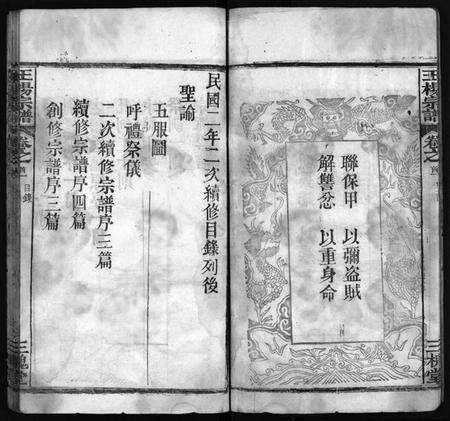 王楊宗譜
卷之首
三槐堂
聯保甲 以彌盜賊
解讐忿 以重身命
民國二年二次續修目錄列後
聖諭
五服圖
呼禮祭儀
二次續修宗譜序三篇
續修宗譜序四篇
創修宗譜序三篇
王楊宗譜
卷之首
目錄
三槐堂